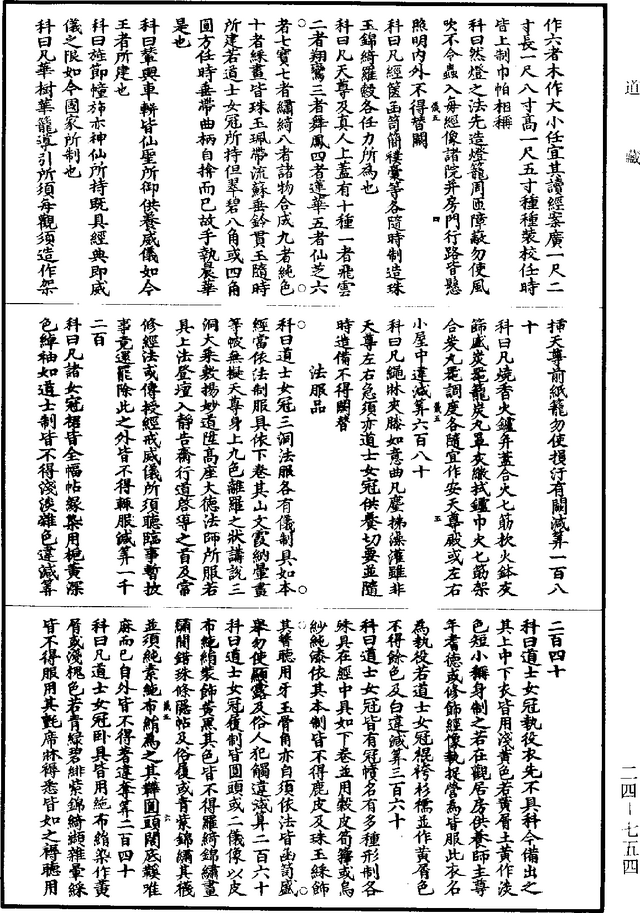 道藏
作六者木作大小任宜其讀經案廣一尺二
寸長一尺八寸高一尺五寸種種裝校任時
皆上制巾帕相稱
科曰然燈之法先造燈籠周匝障蔽勿使風
吹不令蟲入每經像諸院并房門行路皆懸
照明内外不得替闕
儀五 四
科曰凡經箇函笥簡褸囊等各隨時制造珠
玉錦綺羅縠各任力所為也
科曰凡天尊及真人上蓋有十種一者飛雲
二者翔鸞三者舞鳳四者蓮華五者仙芝六
者七寶七者繡綺八者諸物合成九者純色
十者綵畫皆珠玉珮帶流蘇垂鈴貫玉隨時
所建若道士女冠所持但翠碧八角或四角
圓方任時垂帶曲柄自擔而已故手執晨華
是也
科曰輦輿車軿皆仙聖所御供養威儀如今
王者所建也
科曰旌節幢旆亦神仙所持既具經典即威
儀之限如今國家所制也
科曰凡華樹華籠導引所須每觀須造作架
插天尊前紙籠勿使損汙有闕減筭一百八
十
科曰凡燒香火鑪并蓋合火七筯扙火鉢灰
篩盛炭籠龍炭丸罩灰緻拭鑪巾火七筯架
合炭丸罷調度各隨宜作安天尊殿或左右
儀五 五
小屋中違減筭六百八十
科曰凡繩牀夾膝如意曲几塵拂澡灌雖非
天尊左右急須亦道士女冠供養切要並隨
時造備不得闕替
法服品
科曰道士女冠三洞法服各有儀制具如本
經當依法制服具依下卷其山文霞納暈畫
等帔無擬天尊身上九色離羅之狀講說三
洞大乘敷揚妙道陞高座大德法師所服若
具上法登壇入靜告齋行道啓導之首及當
修經法或傳授經戒威儀所須聽臨事暫披
事竟還罷除此之外皆不得輙服減筭一千
二百
科曰凡諸女冠裙皆全幅帖緣染用梔黄深
色綽袖如道士制皆不得淺淡雜色違減筭
二百四十
科曰道士女冠執役衣先不具科今備出之
其上中下衣皆用淺黄色若黄屑土黄作淡
色短小稱身制之若在觀居房供養師主尊
年耆德或修飾經像執捉營為皆服此衣名
為執役若道士女冠裩袴衫襦並作黄屑色
不得餘色及白違減筭三百六十
科曰道士女冠皆有冠幘名有多種形制各
殊具在經中具如下卷並用縠皮筍籜或烏
紗純漆依其本制皆不得鹿皮及珠玉綵飾
其簪聽用牙玉骨角亦自須依法皆函笥盛
舉勿使顯露及俗人犯觸違減筭二百六十
科曰道士女冠履制皆圓頭或二儀像以皮
布絁絹裝飾黄黑其色皆不得羅綺錦繡畫
繡間錯珠條隱帖及俗履或青紫錦繡其襪
儀五 六
並須純素絁布絹為之其鞾圓頭闊底䪌唯
麻而已自外皆不得著違奪筭二百四十
科曰凡道士女冠臥具皆用絁布絹染作黄
屑或淺槐色若青綠碧緋紫錦綺纈雜暈綵
皆不得服用其氈席牀褥悉皆如之褥聽用
二四—七五四